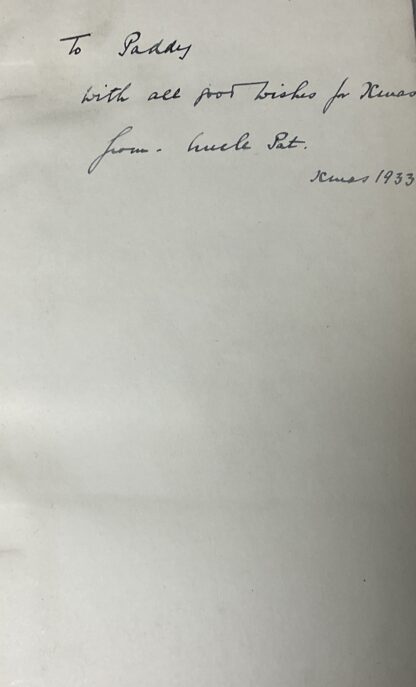 To Paddy
with all good wishes for Xmas
from - Uncle Pat.
Xmas 1933